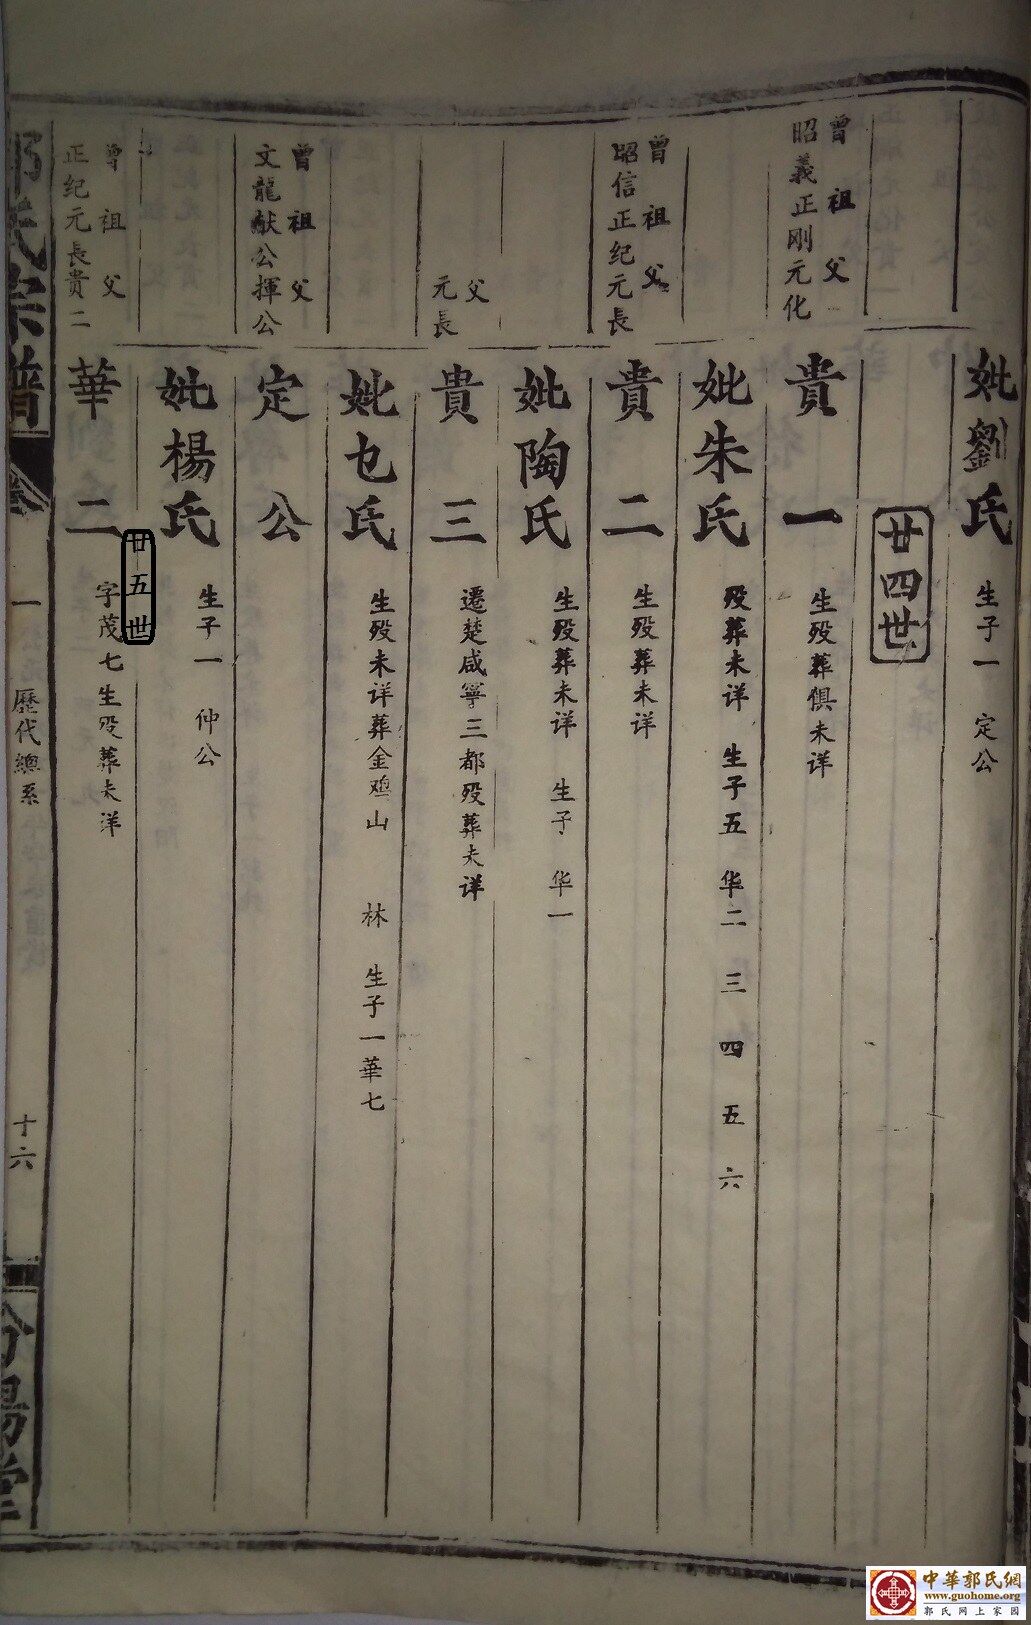 妣劉氏
生子一 定公
廿四世
曾祖父
昭義正剛元化
貴一
生殁葬俱未详
妣朱氏
殁葬未详 生子五 华二 三 四 五 六
曾祖父
昭信正纪元長
貴二
生殁葬未详
妣陶氏
生殁葬未详 生子 华一
父
元長
貴三
遷楚咸寧三都殁葬未详
妣乜氏
生殁未详葬金鸡山 林 生子一華七
曾祖父
文龍献公揮公
定公
妣楊氏
生子一 仲公
廿五世
曾祖父
正纪元長貴二
華二
字茂七生殁葬未详
郭氏宗譜
卷一
歷代總系
十六
汾陽堂
中華郭氏網
www.guohome.org
郭氏网上家园